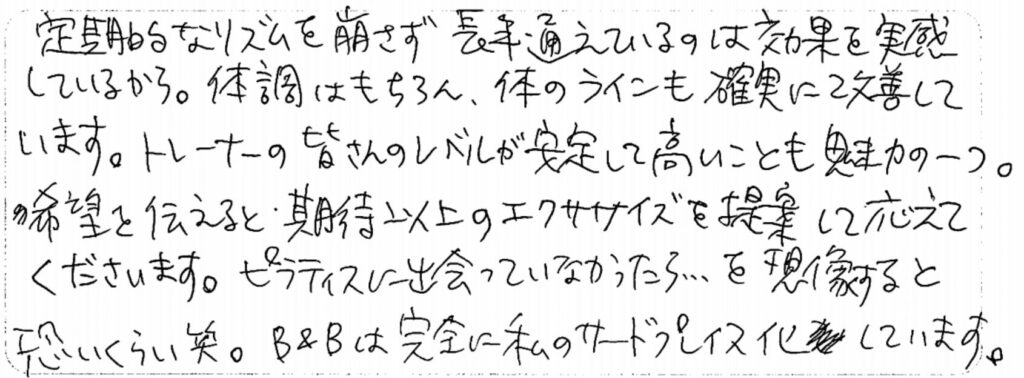 定期的なリズムを崩さず長年通えているのは効果を実感
しているから。体調はもちろん、体のラインも確実に改善して
います。トレーナーの皆さんのレベルが安定して高いことも魅力の一つ。
希望を伝えると期待以上のエクササイズを提案して応えて
くださいます。ピラティスに出会っていなかったら…を想像すると
恐いくらい笑。B&Bは完全に私のサードプレイス化しています。